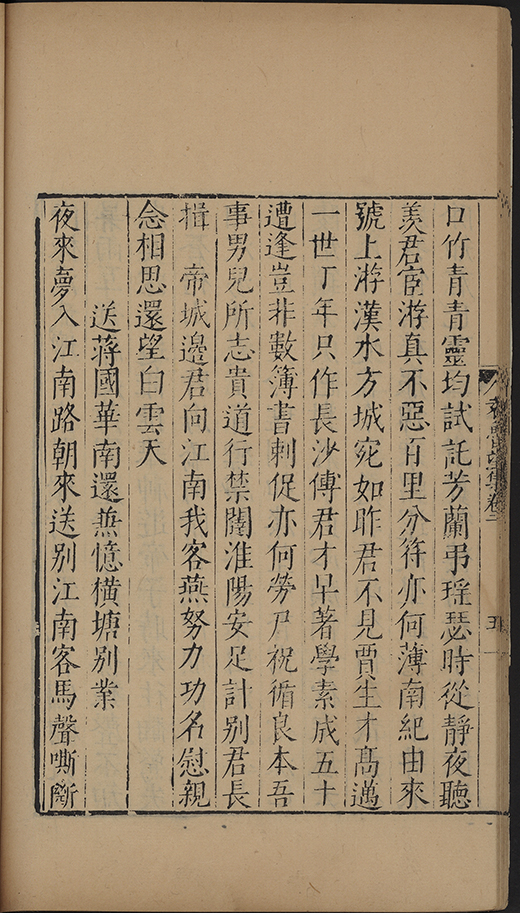 口竹青青靈均試託芳蘭弔瑶瑟時從靜夜聽
羨君宦游真不惡百里分符亦何薄南紀由來
號上游漢水方城宛如昨君不見賈生才高邁
一世丁年只作長沙傅君才早著學素成五十
遭逢豈非數簿書刺促亦何勞尸祝循良本吾
事男兒所志貴道行禁闥淮陽安足計別君長
揖　帝城邊君向江南我客燕努力功名慰親
念相思還望白雲天
送蔣國華南還兼憶橫塘別業
夜來夢入江南路朝來送別江南客馬聲嘶斷